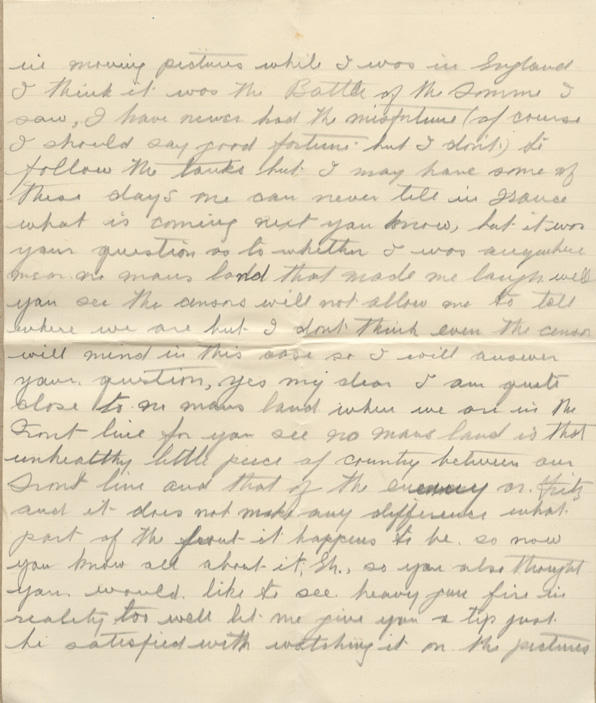 in moving pictures while I was in England
I think it was the Battle of the Somme I
saw, I have never had the misfortune (of course
I should say good fortune but I don't) to
follow the tanks but I may have some of
these days one can never tell in France
what is coming next you know, but it was
your question as to whether I was anywhere
near no mans land that made me laugh well
you see the censors will not allow me to tell
where we are but I dont think even the censor
will mind in this case so I will answer
your question, yes my dear I am quite
close to no mans land when we are in the
Front line for you see no mans land is that
unhealthy little piece of country between our
Front line and that of the enemy or Fritz
and it does not make any difference what
part of the front it happens to be. so now
you know all about it, Eh., so you also thought
you would like to see heavy gun fire in
reality too well let me give you a tip just
be satisfied with watching it on the pictures